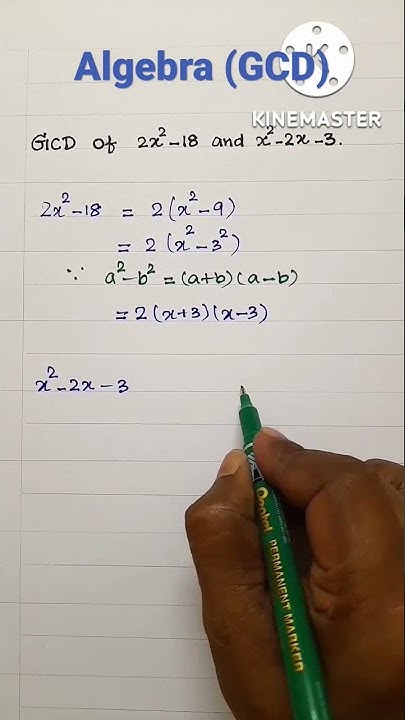 Algebra (GCD)
KINEMASTER
GCD of 2x²-18 and x²-2x-3.
2x²-18 = 2(x²-9)
= 2(x²-3²)
∵ a²-b² = (a+b)(a-b)
= 2(x+3)(x-3)
x²-2x-3
PERMANENT MARKER